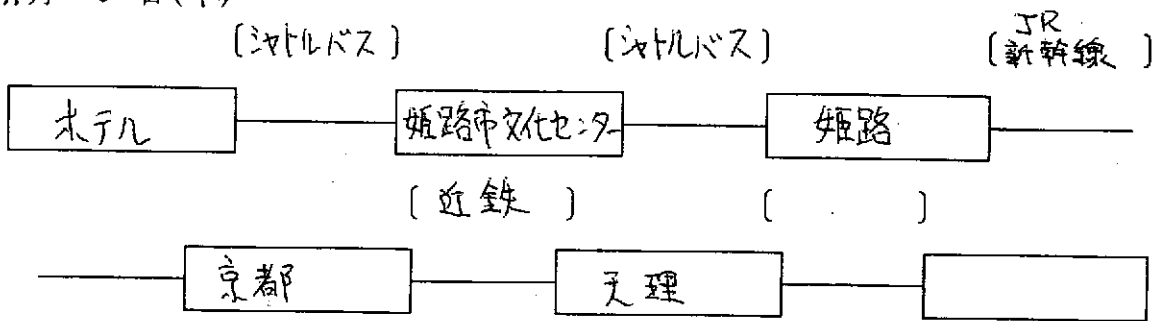 (シャトルバス) (シャトルバス) (JR 新幹線)
ホテル 姫路市文化センター 姫路
(近鉄) ( )
京都 天理